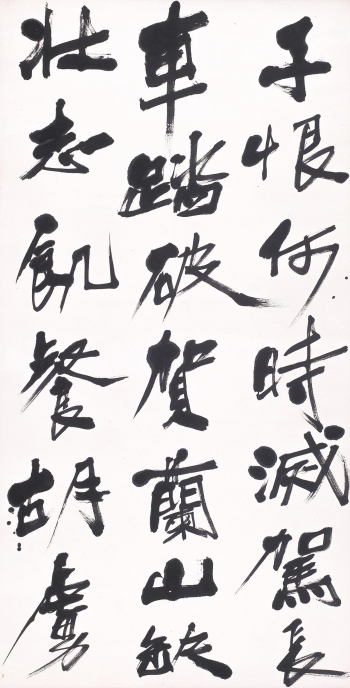 子恨何時滅駕長
車踏破賀蘭山缺
壯志飢餐胡虜